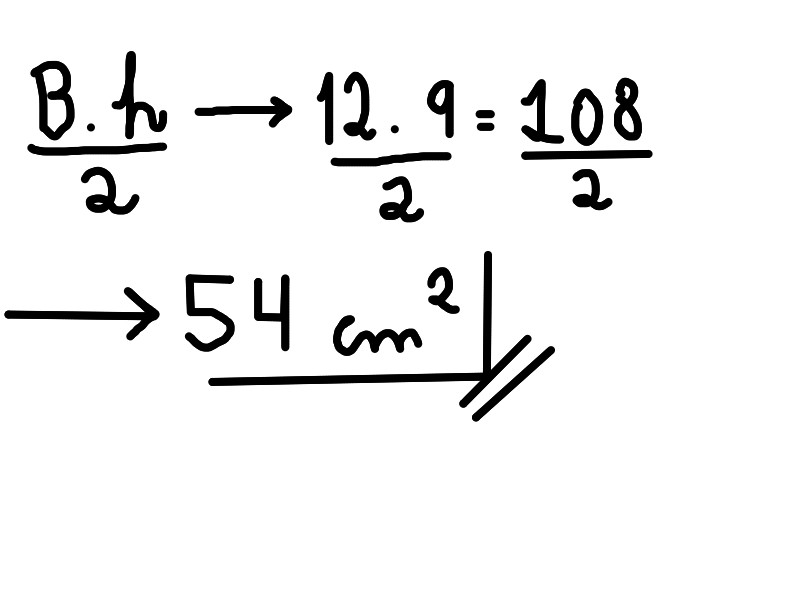 B.h/2 → 12.9/2 = 108/2
→ 54 cm²